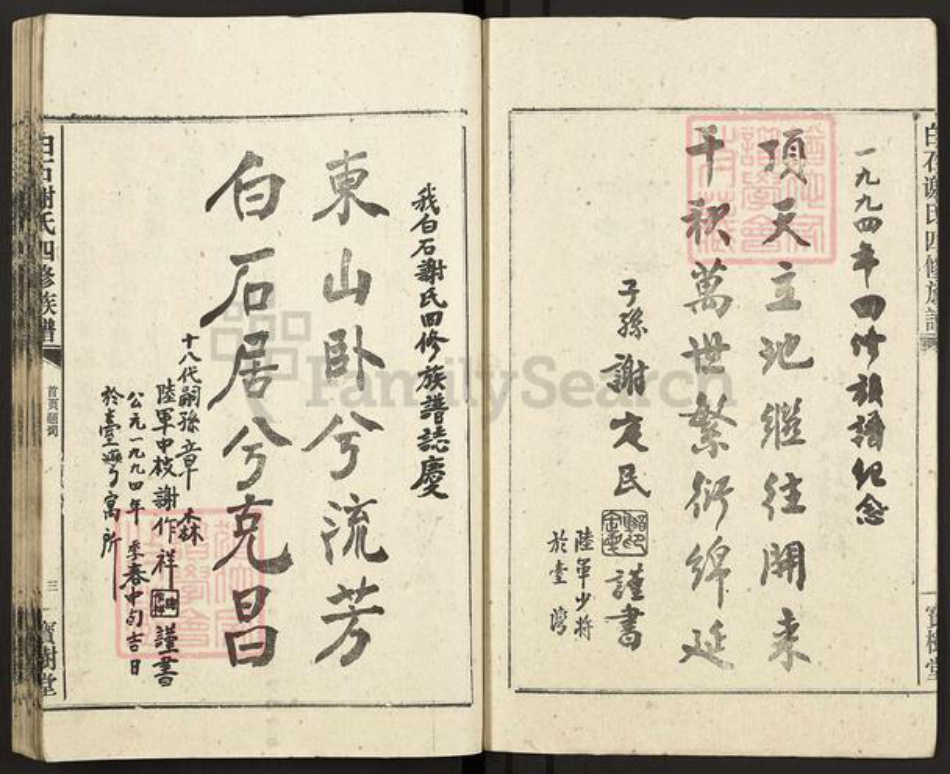 白石謝氏四修族譜
寶樹堂
一九九四年四修族譜纪念
頂天立地繼往開来
千秋萬世繁衍綿延
子孫謝定民
謹書
陸軍少將
於臺灣
我白石謝氏四修族譜誌慶
東山卧兮流芳
白石居兮克昌
十八代嗣孫章
陸軍中校謝作祥
謹書
公元一九九四年季春中旬吉日
於臺灣寓所
白石謝氏四修族譜
首頁題詞
三
寶樹堂
FamilySearch